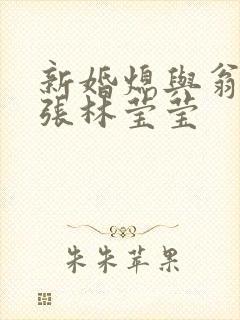 新婚熄與翁
張林莹莹
朱朱苹果